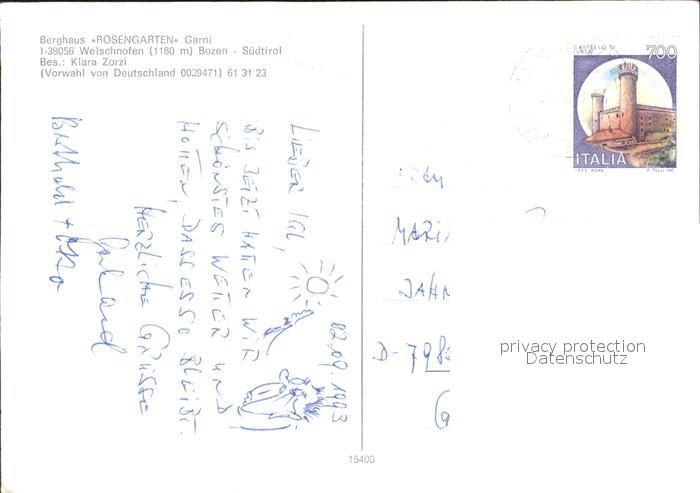 Berghaus »ROSENGARTEN« Garni
I-39056 Welschnofen (1180 m) Bozen - Südtirol
Bes.: Klara Zorzi
(Vorwahl von Deutschland 0039471) 61 31 23
02.09.1993
LIEBER IGL,
BIS JETZT HATTEN WIR
SCHÖNSTES WETTER UND
HOFFEN, DASS ES SO BLEIBT.
HERZLICHE GRÜSSE
Gerhard
Berthold +
CASTELLO DI
IVREA
700
ITALIA
I.P.Z.S. ROMA
MARI
JAHN
D-798
privacy protection
Datenschutz
15400